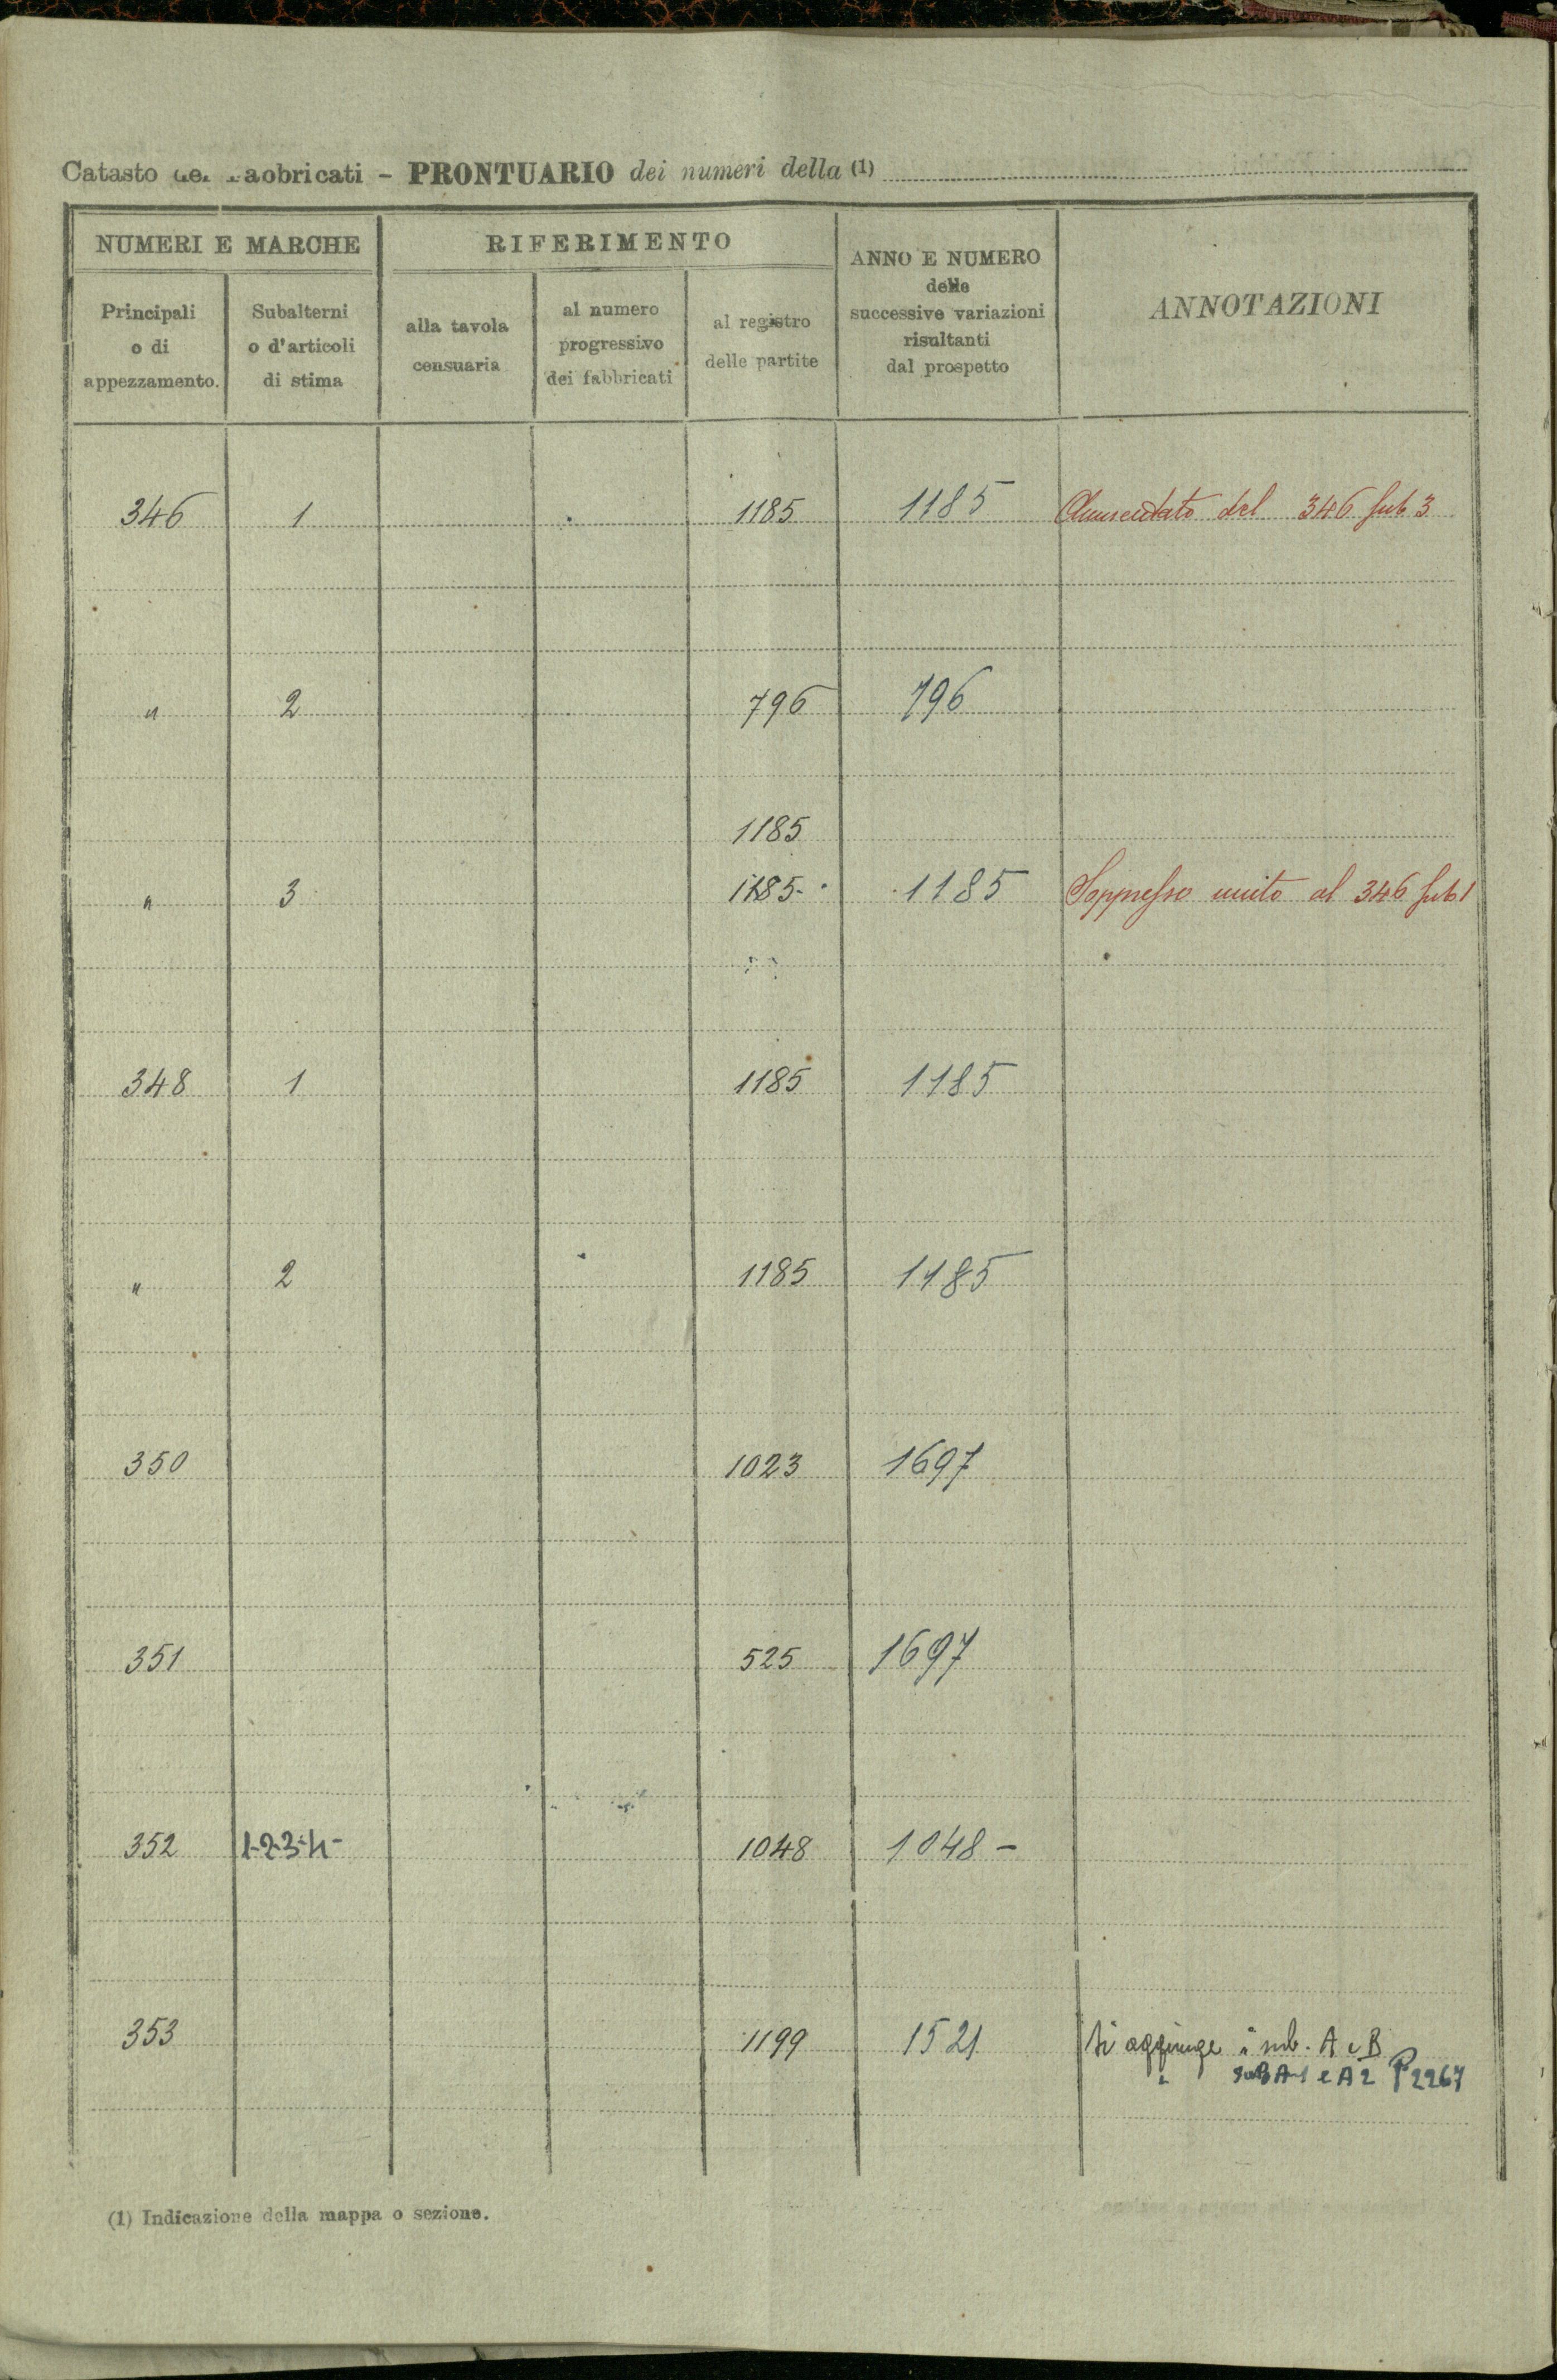 Catasto dei Fabbricati – PRONTUARIO dei numeri della (1)
NUMERI E MARCHE
RIFERIMENTO
ANNO E NUMERO
delle
successive variazioni
risultanti
dal prospetto
ANNOTAZIONI
Principali
o di
appezzamento.
Subalterni
o d'articoli
di stima
alla tavola
censuaria
al numero
progressivo
dei fabbricati
al registro
delle partite
346 1 1185 1185 Aumentato del 346 sub 3
" 2 796 796
1185
" 3 1185 - 1185 Soppresso unito al 346 sub 1
348 1 1185 1185
" 2 1185 1185
350 1023 1697
351 525 1697
352 1-2-3-4- 1048 1048 –
353 1199 1521 si aggiunge i sub. A e B
" SUB A-1 e A2 P 2267
(1) Indicazione della mappa o sezione.